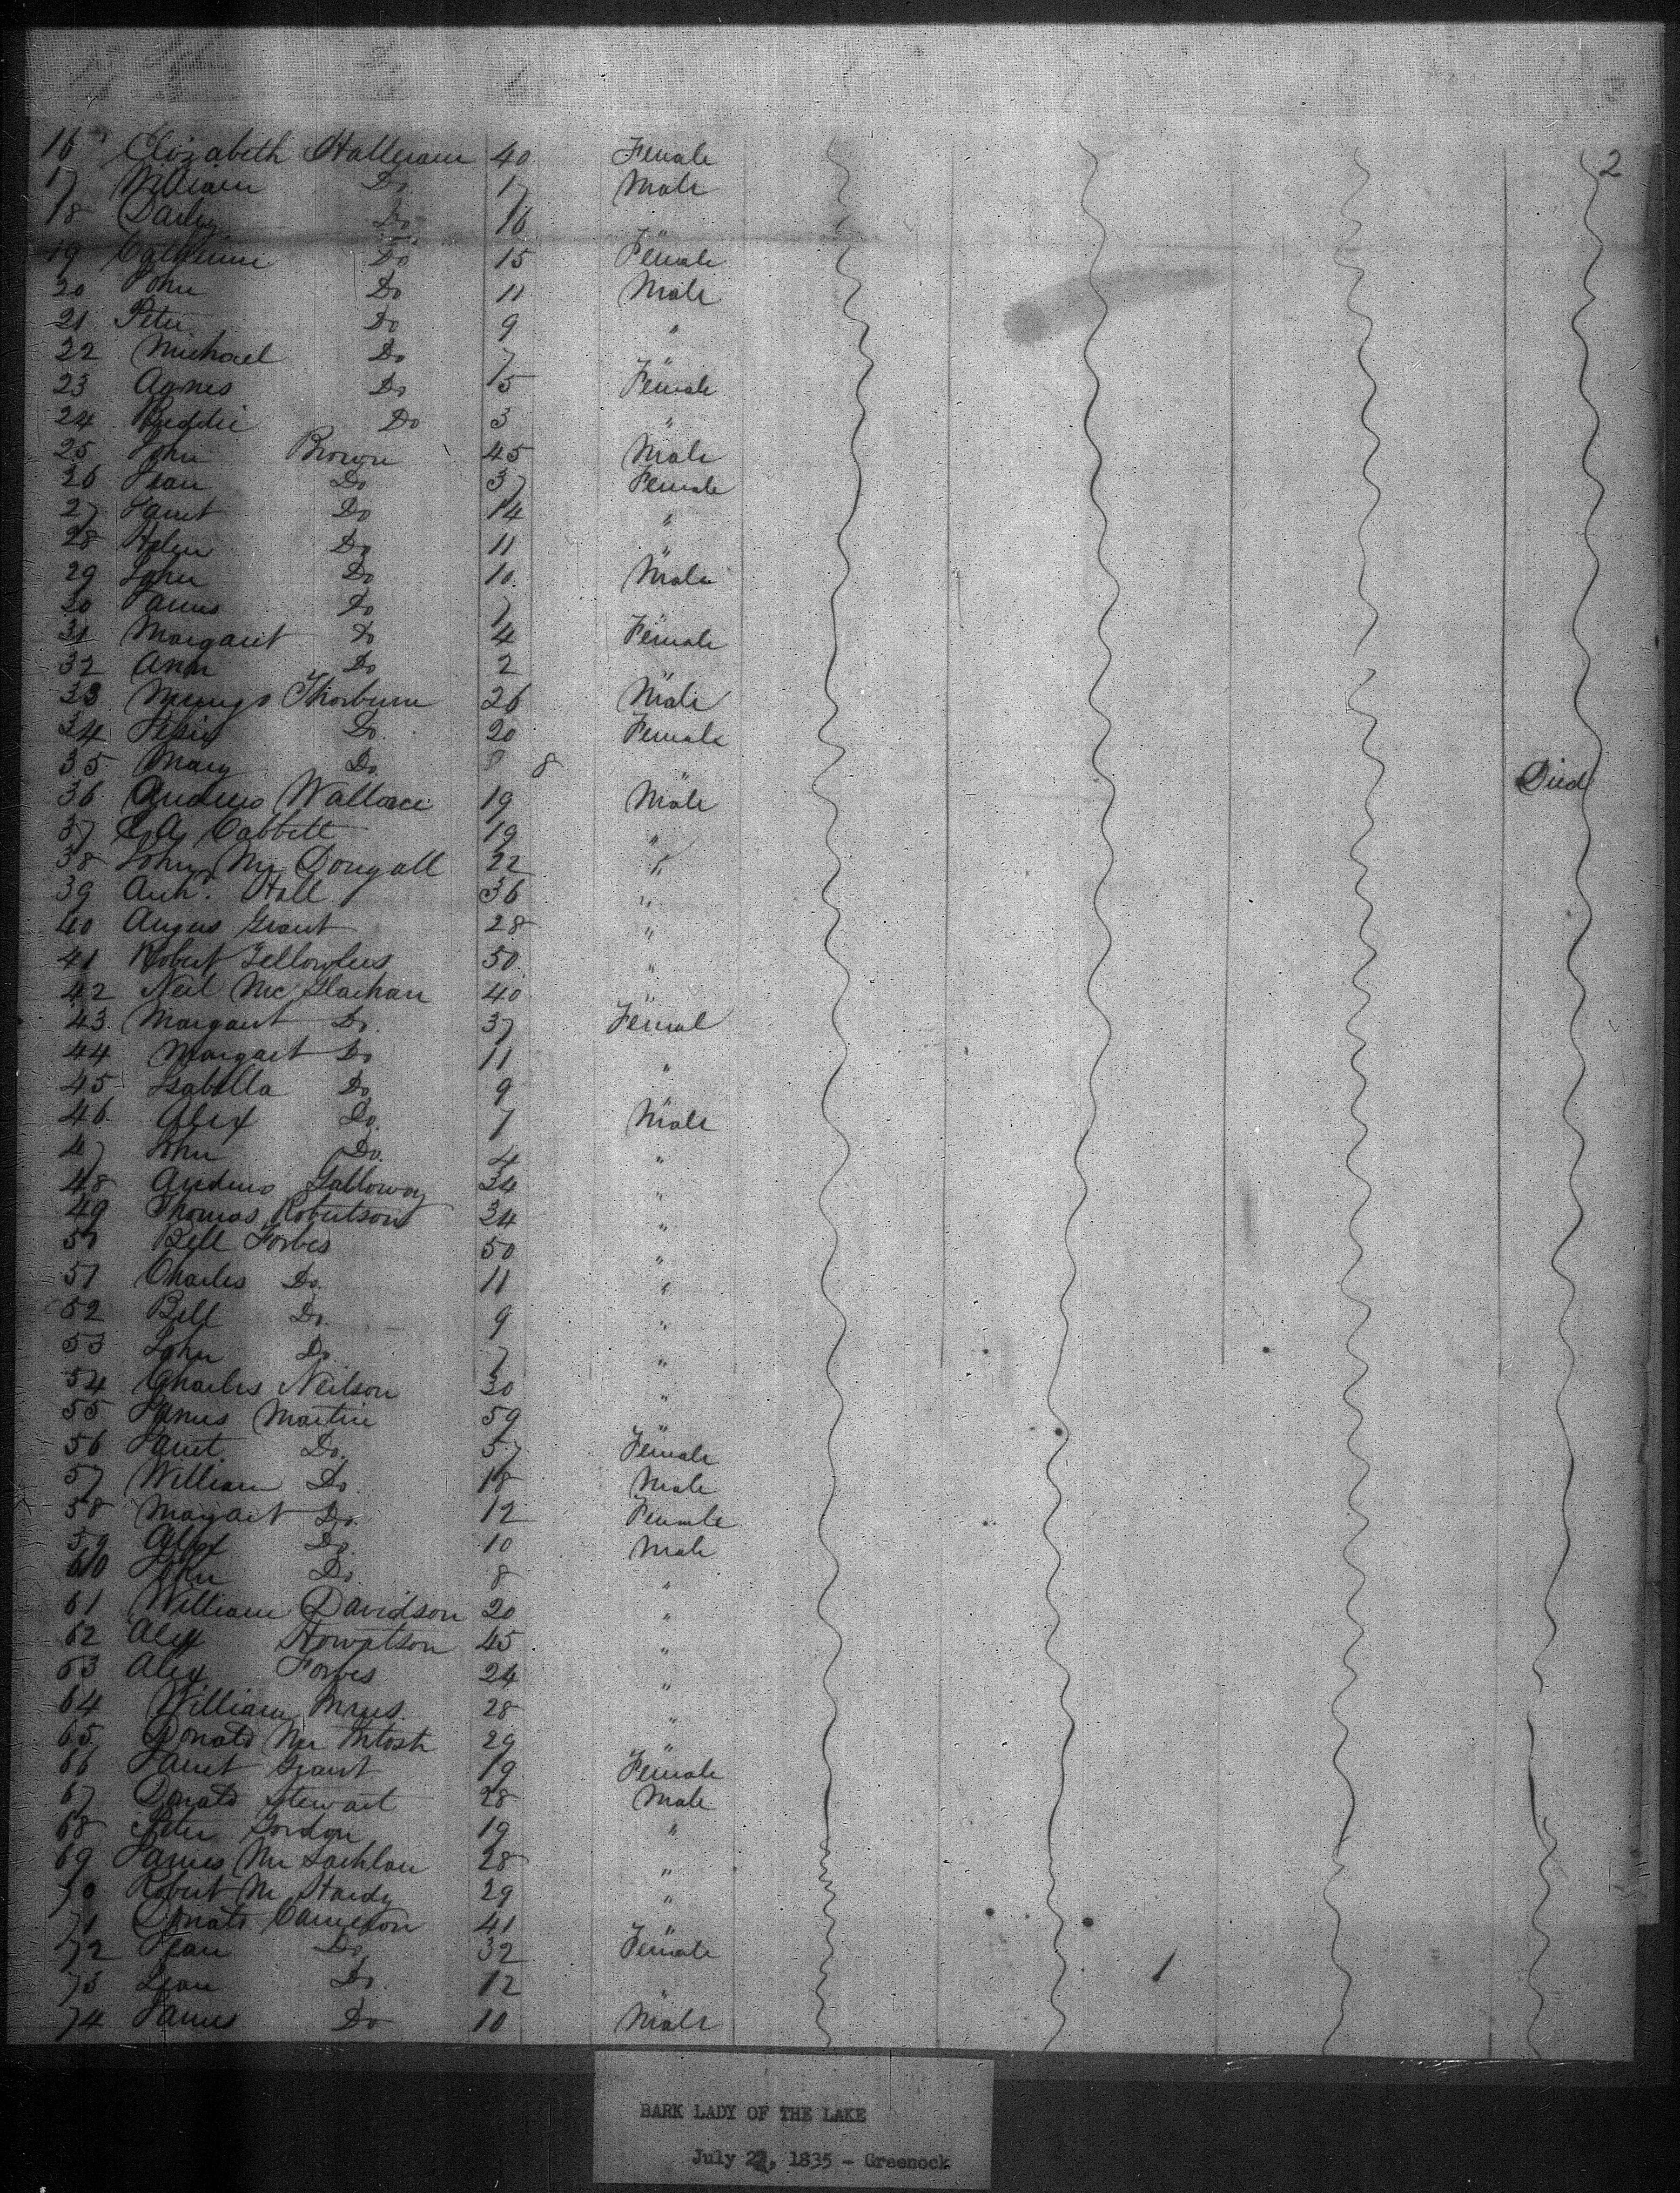 2
16 Elizabeth Halleran 40 Female
17 William Do 17 Male
18 Do 16 "
19 Catherine Do 15 Female
20 John Do 11 Male
21 Peter Do 9 "
22 Michael Do 7 "
23 Agnes Do 5 Female
24 Do 3 "
25 John Brown 45 Male
26 Jean Do 37 Female
27 Janet Do 14 "
28 Helen Do 11 "
29 John Do 10 Male
30 James Do 7 "
31 Margaret Do 4 Female
32 Ann Do 2 "
33 Mungo Thorburn 26 Male
34 Do 20 Female
35 Mary Do 8 " Died
36 Andrew Wallace 19 Male
37 Cabbett 19 "
38 John Mc Dougall 22 "
39 Arch.d Hall 36 "
40 Angus Grant 28 "
41 Robert Fellowlees 50 "
42 Neil Mc Glachan 40 "
43 Margaret Do 37 Femal
44 Margaret Do 11 "
45 Isabella Do 9 "
46 Alex Do 7 Male
47 John Do 4 "
48 Andrew Galloway 34 "
49 Thomas Robertson 34 "
50 Bell Forbes 50 "
51 Charles Do 11 "
52 Bell Do 9 "
53 John Do 7 "
54 Charles Neilson 30 "
55 James Martin 59 "
56 Janet Do 57 Female
57 William Do 18 Male
58 Margaret Do 12 Female
59 Alex Do 10 Male
60 John Do 8 "
61 William Davidson 20 "
62 Alex Howatson 45 "
63 Alex Forbes 24 "
64 William 28 "
65 Donald Mc Intosh 29 "
66 Janet Grant 19 Female
67 Donald Stewart 28 Male
68 Peter Gordon 19 "
69 James Mc Lachlan 28 "
70 Robert Mc Hardy 29 "
71 Donald Cameron 41 "
72 Jean Do 32 Female
73 Jean Do 12 "
74 James Do 10 Male
BARK LADY OF THE LAKE
July 22, 1835 - Greenock